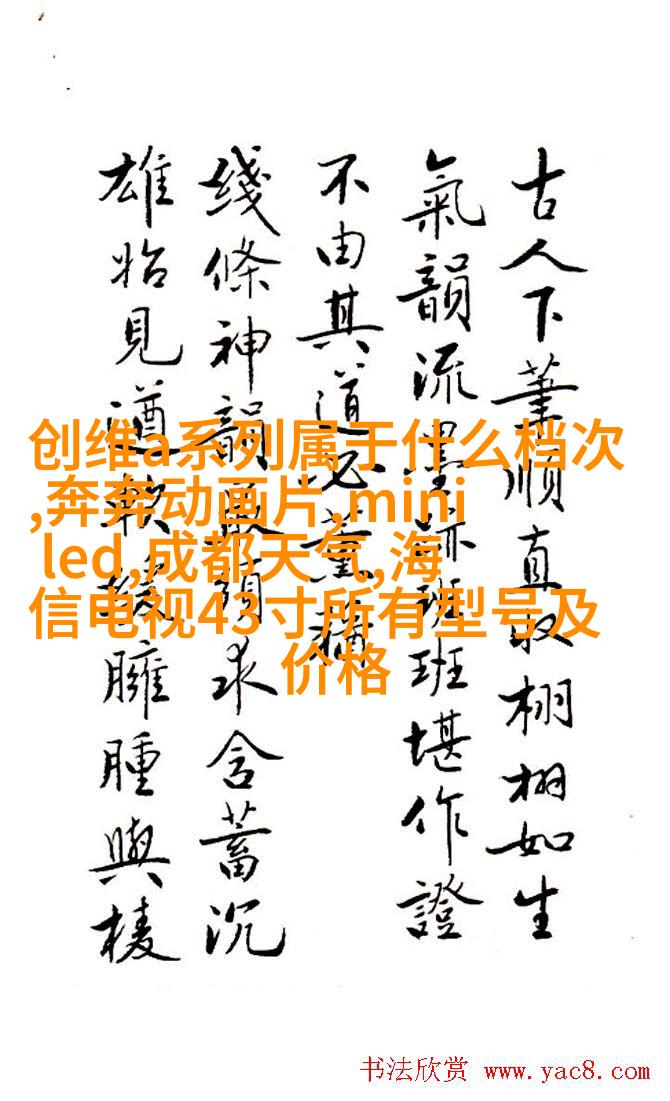 古人下筆順直取栩栩如生
氣韻流墨跡班班堪作證
不由其道必
綫條神韻須求含蓄沉
雄始見遒軟臃腫與棱
创维a系列属于什么档次
,奔奔动画片,mini
led,成都天气,海
信电视43寸所有型号及
价格
书法欣赏 www.yac8.com